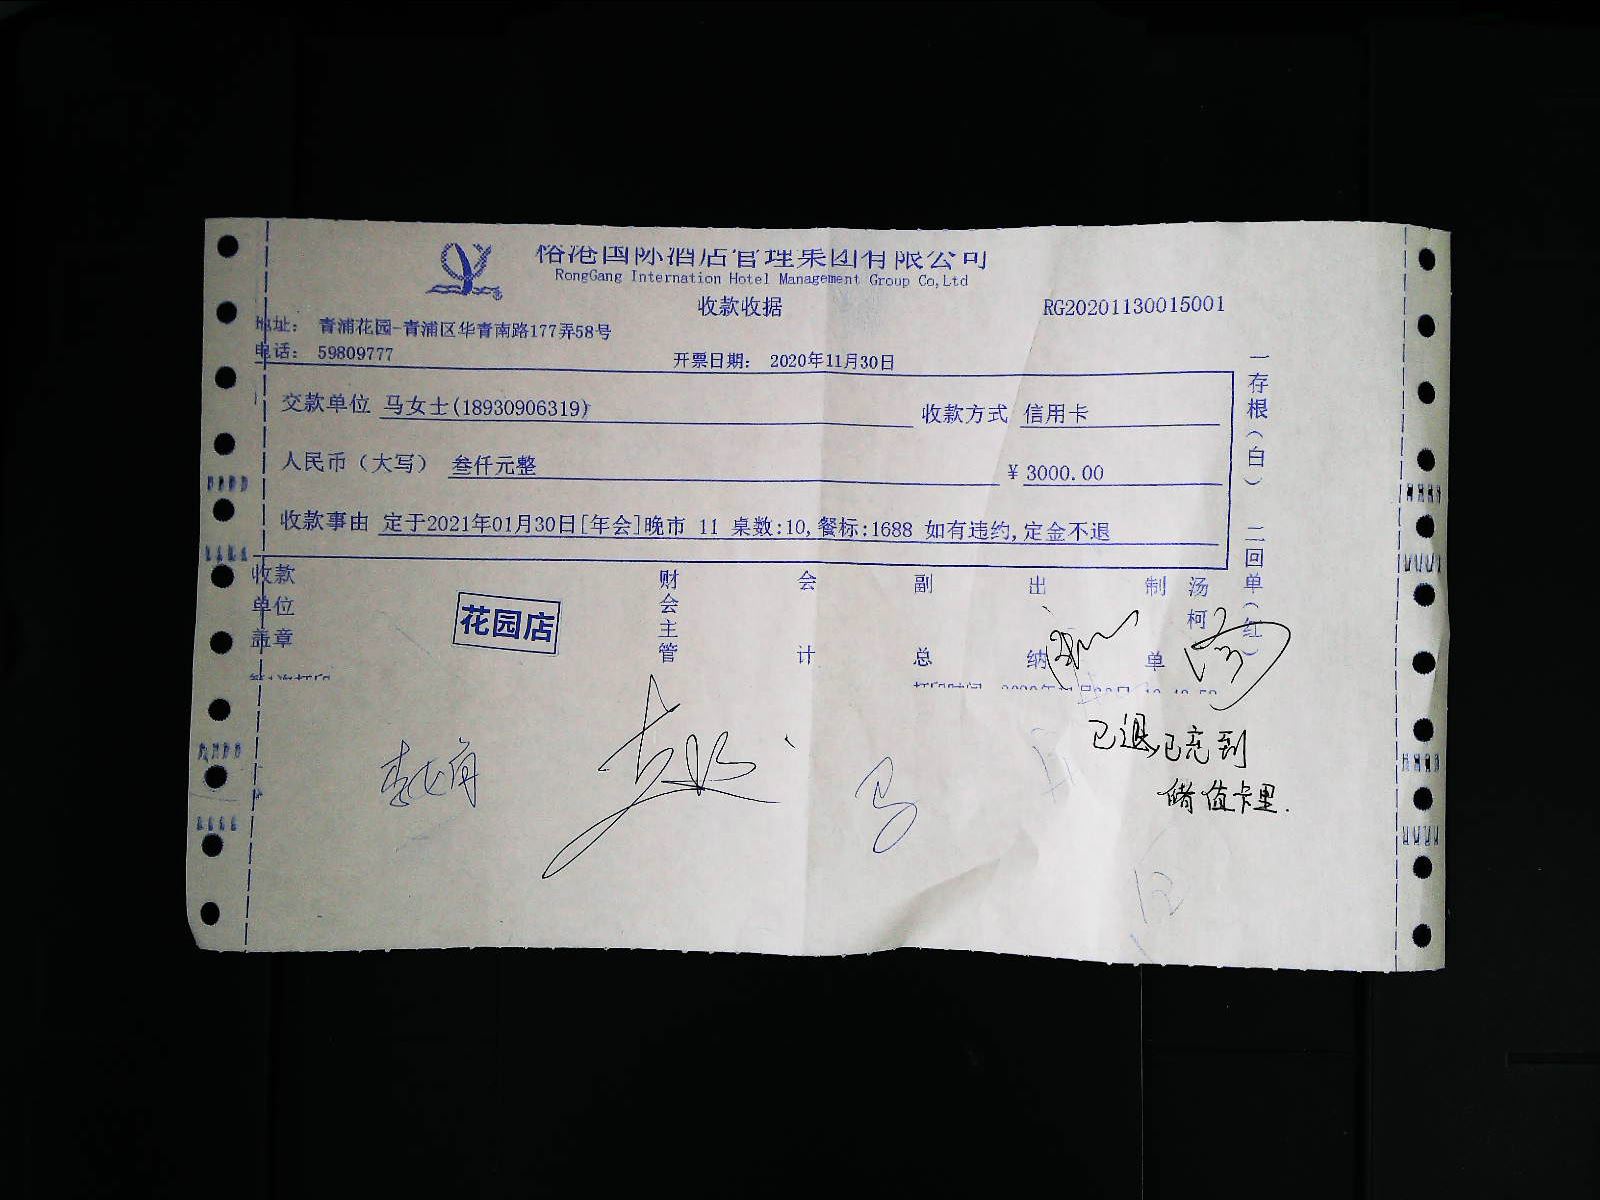 榕港国际酒店管理集团有限公司
RongGang International Hotel Management Group Co,Ltd
收款收据
RG20201130015001
地址： 青浦花园-青浦区华青南路177弄58号
电话： 59809777
开票日期： 2020年11月30日
交款单位 马女士(18930906319)
收款方式 信用卡
人民币（大写） 叁仟元整
¥ 3000.00
收款事由 定于2021年01月30日[年会]晚市 11 桌数:10,餐标:1688 如有违约,定金不退
一存根（白） 二回单（红）
收款单位盖章
花园店
财会主管
会计
副总
出纳
制单
汤柯
已退,已充到
储值卡里.
马